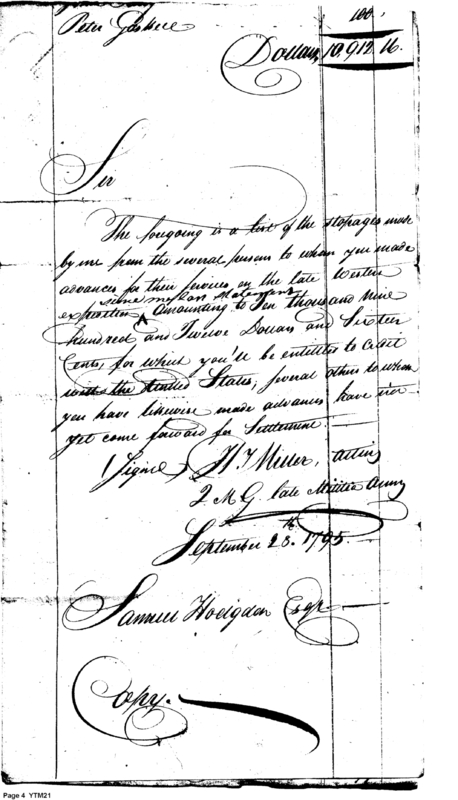 Peter Gaskill 100.
Dollars 10,912 16.
Sir
The foregoing is a list of the stopages made
by me from the several persons to whom you made
advances for their services on the late Western
expedition
since my last statement
^ Amounting to Ten thousand Nine
hundred and Twelve Dollars and Sixteen
Cents, for which you'll be entitled to credit
with the United States, several others to whom
you have likewise made advances have not
yet come forward for Settlement.
(Signed) H Miller, acting
Q M G. late Militia Army
September 28.th 1795.
Samuel Hodgdon Esqr
Copy.
Page 4 YTM21